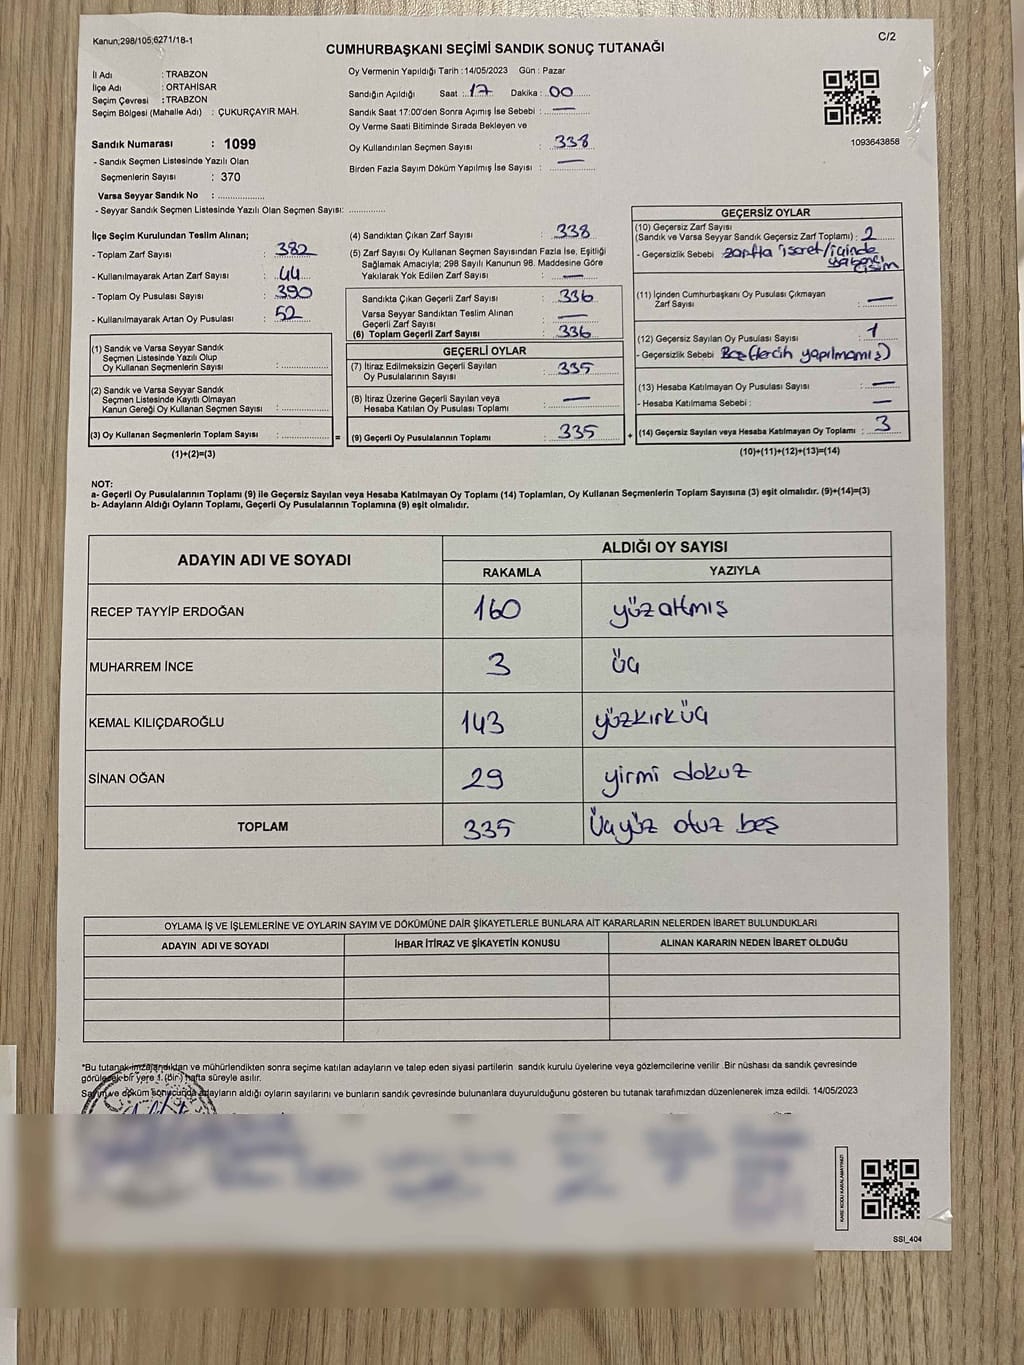 Kanun;298/105;6271/18-1
C/2
CUMHURBAŞKANI SEÇİMİ SANDIK SONUÇ TUTANAĞI
İl Adı : TRABZON
İlçe Adı : ORTAHİSAR
Seçim Çevresi : TRABZON
Seçim Bölgesi (Mahalle Adı) : ÇUKURÇAYIR MAH.
Sandık Numarası : 1099
- Sandık Seçmen Listesinde Yazılı Olan
Seçmenlerin Sayısı : 370
Varsa Seyyar Sandık No : ..................
- Seyyar Sandık Seçmen Listesinde Yazılı Olan Seçmen Sayısı: .............
Oy Vermenin Yapıldığı Tarih :14/05/2023 Gün : Pazar
Sandığın Açıldığı Saat : 17 Dakika : 00
Sandık Saat 17:00'den Sonra Açımış İse Sebebi : —
Oy Verme Saati Bitiminde Sırada Bekleyen ve
Oy Kullandırılan Seçmen Sayısı : 338
Birden Fazla Sayım Döküm Yapılmış İse Sayısı : —
1093643858
İlçe Seçim Kurulundan Teslim Alınan;
- Toplam Zarf Sayısı : 382
- Kullanılmayarak Artan Zarf Sayısı : 44
- Toplam Oy Pusulası Sayısı : 390
- Kullanılmayarak Artan Oy Pusulası : 52
(1) Sandık ve Varsa Seyyar Sandık
Seçmen Listesinde Yazılı Olup
Oy Kullanan Seçmenlerin Sayısı : ............
(2) Sandık ve Varsa Seyyar Sandık
Seçmen Listesinde Kayıtlı Olmayan
Kanun Gereği Oy Kullanan Seçmen Sayısı : ............
(3) Oy Kullanan Seçmenlerin Toplam Sayısı : ............
(1)+(2)=(3)
(4) Sandıktan Çıkan Zarf Sayısı : 338
(5) Zarf Sayısı Oy Kullanan Seçmen Sayısından Fazla İse, Eşitliği
Sağlamak Amacıyla; 298 Sayılı Kanunun 98. Maddesine Göre
Yakılarak Yok Edilen Zarf Sayısı : —
Sandıkta Çıkan Geçerli Zarf Sayısı : 336
Varsa Seyyar Sandıktan Teslim Alınan
Geçerli Zarf Sayısı : —
(6) Toplam Geçerli Zarf Sayısı : 336
GEÇERLİ OYLAR
(7) İtiraz Edilmeksizin Geçerli Sayılan
Oy Pusulalarının Sayısı : 335
(8) İtiraz Üzerine Geçerli Sayılan veya
Hesaba Katılan Oy Pusulası Toplamı : —
= (9) Geçerli Oy Pusulalarının Toplamı : 335 +
GEÇERSİZ OYLAR
(10) Geçersiz Zarf Sayısı
(Sandık ve Varsa Seyyar Sandık Geçersiz Zarf Toplamı) : 2
- Geçersizlik Sebebi zarfta işaret/içinde
yabancı
cisim
(11) İçinden Cumhurbaşkanı Oy Pusulası Çıkmayan
Zarf Sayısı : —
(12) Geçersiz Sayılan Oy Pusulası Sayısı : 1
- Geçersizlik Sebebi Boş(tercih yapılmamış)
(13) Hesaba Katılmayan Oy Pusulası Sayısı : —
- Hesaba Katılmama Sebebi : —
(14) Geçersiz Sayılan veya Hesaba Katılmayan Oy Toplamı : 3
(10)+(11)+(12)+(13)=(14)
NOT:
a- Geçerli Oy Pusulalarının Toplamı (9) ile Geçersiz Sayılan veya Hesaba Katılmayan Oy Toplamı (14) Toplamları, Oy Kullanan Seçmenlerin Toplam Sayısına (3) eşit olmalıdır. (9)+(14)=(3)
b- Adayların Aldığı Oyların Toplamı, Geçerli Oy Pusulalarının Toplamına (9) eşit olmalıdır.
ADAYIN ADI VE SOYADI ALDIĞI OY SAYISI
RAKAMLA YAZIYLA
RECEP TAYYİP ERDOĞAN 160 yüzatmış
MUHARREM İNCE 3 üç
KEMAL KILIÇDAROĞLU 143 yüzkırküç
SİNAN OĞAN 29 yirmi dokuz
TOPLAM 335 Üçyüz otuz beş
OYLAMA İŞ VE İŞLEMLERİNE VE OYLARIN SAYIM VE DÖKÜMÜNE DAİR ŞİKAYETLERLE BUNLARA AİT KARARLARIN NELERDEN İBARET BULUNDUKLARI
ADAYIN ADI VE SOYADI İHBAR İTİRAZ VE ŞİKAYETİN KONUSU ALINAN KARARIN NEDEN İBARET OLDUĞU
*Bu tutanak imzalandıktan ve mühürlendikten sonra seçime katılan adayların ve talep eden siyasi partilerin sandık kurulu üyelerine veya gözlemcilerine verilir .Bir nüshası da sandık çevresinde
görülecek bir yere 1.(bir) hafta süreyle asılır.
Sayım ve döküm sonucunda adayların aldığı oyların sayılarını ve bunların sandık çevresinde bulunanlara duyurulduğunu gösteren bu tutanak tarafımızdan düzenlenerek imza edildi. 14/05/2023
KARE KODU KARALAMAYINIZ!
SSI_404